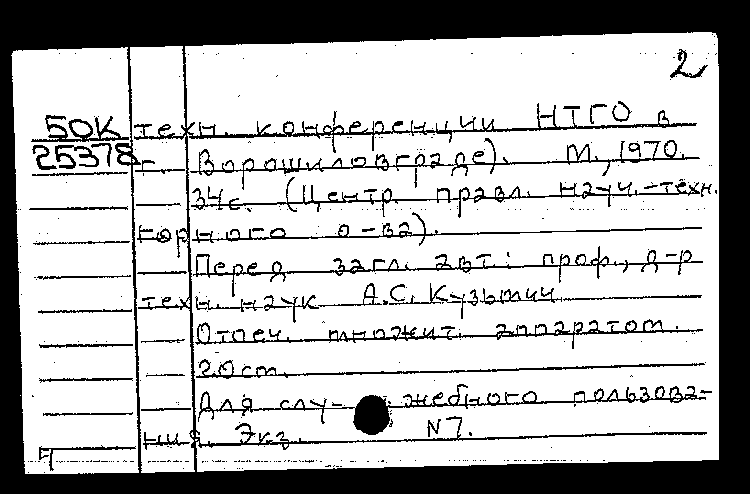 2
50К техн. конференции НТГО в
25378 г. Ворошиловграде). М., 1970.
34с. (Центр. правл. науч.-техн.
горного о-ва).
Перед загл. авт.: проф., д-р
техн. наук А.С. Кузьмич
Отпеч. множит. аппаратом.
20см.
Для слу- жебного пользова-
ния. Экз. N7.